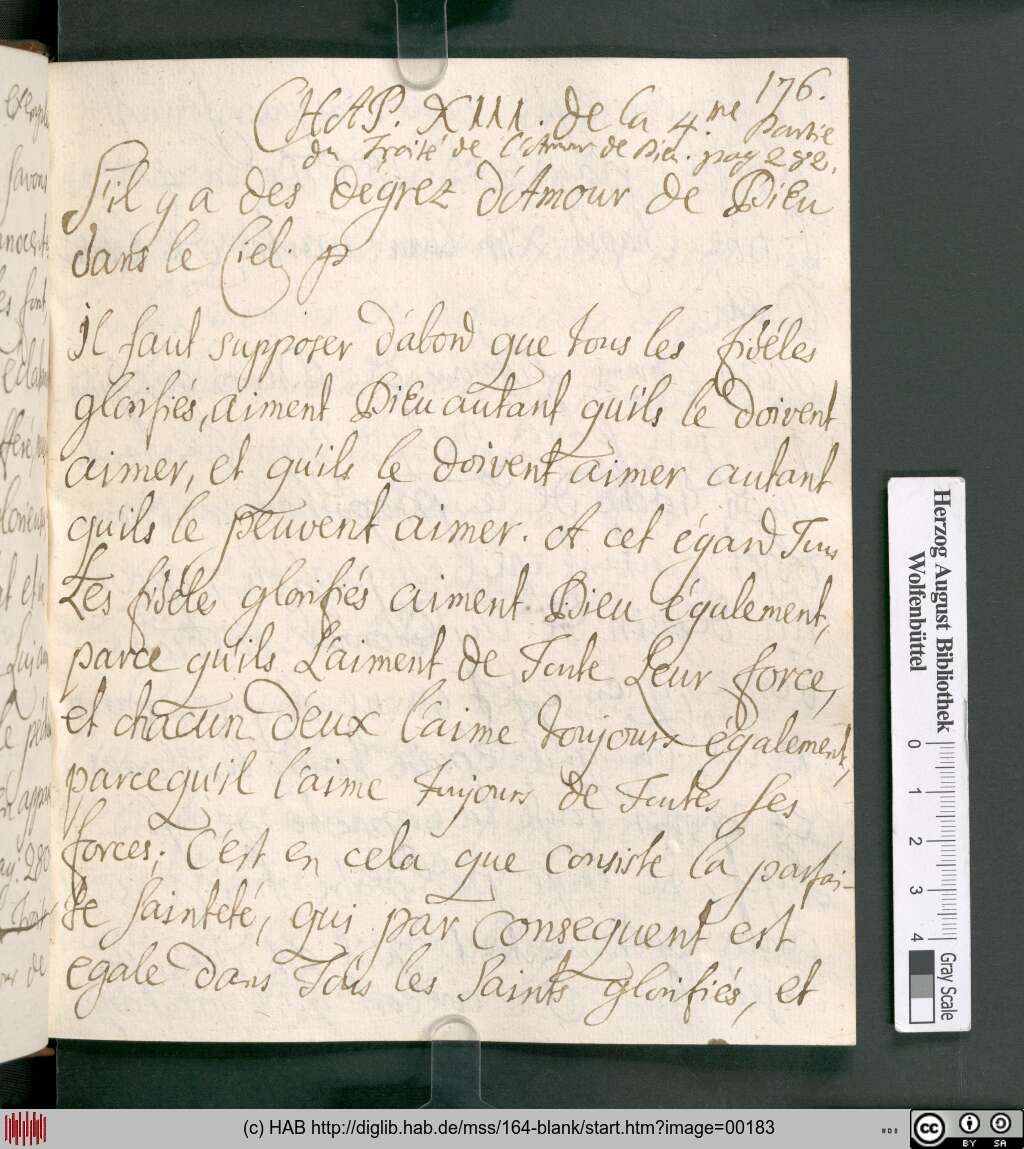 176.
CHAP. XIII. de la 4.me Partie
du Traité de l'Amour de Dieu. pag 282.
S'il y a des dégrez d'Amour de Dieu
dans le Ciel.
Il faut supposer d'abord que tous les fidéles
glorifiés, aiment Dieu autant qu'ils le doivent
aimer, et qu'ils le doivent aimer autant
qu'ils le peuvent aimer. A cet égard Tous
Les fidéles glorifiés aiment Dieu également,
parce qu'ils L'aiment de Toute Leur force,
et chacun d'eux l'aime toujours également,
parcequ'il l'aime toujours de Toutes ses
forces; C'est en cela que consiste la parfai-
te sainteté, qui par consequent est
egale dans Tous les Saints glorifiés, et
Herzog August Bibliothek
Wolfenbüttel
0 1 2 3 4
Gray Scale
(c) HAB http://diglib.hab.de/mss/164-blank/start.htm?image=00183
cc BY SA